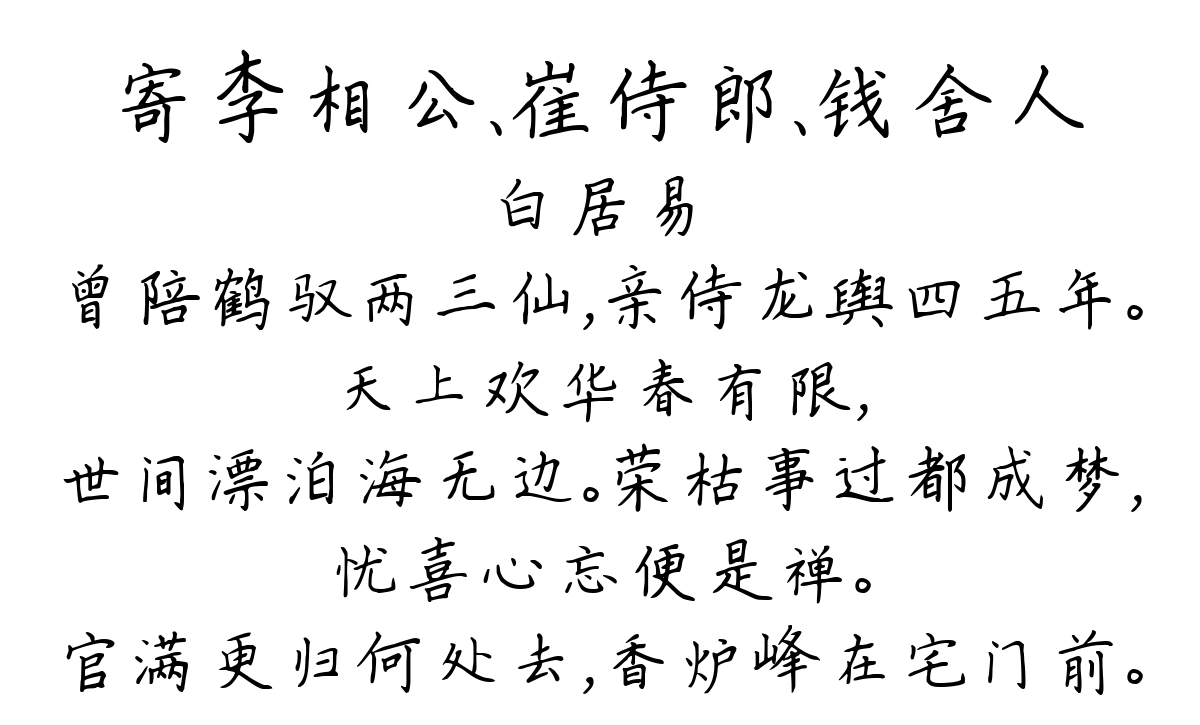 寄李相公、崔侍郎、钱舍人
白居易
曾陪鹤驭两三仙,亲侍龙舆四五年。
天上欢华春有限,
世间漂泊海无边。荣枯事过都成梦,
忧喜心忘便是禅。
官满更归何处去,香炉峰在宅门前。